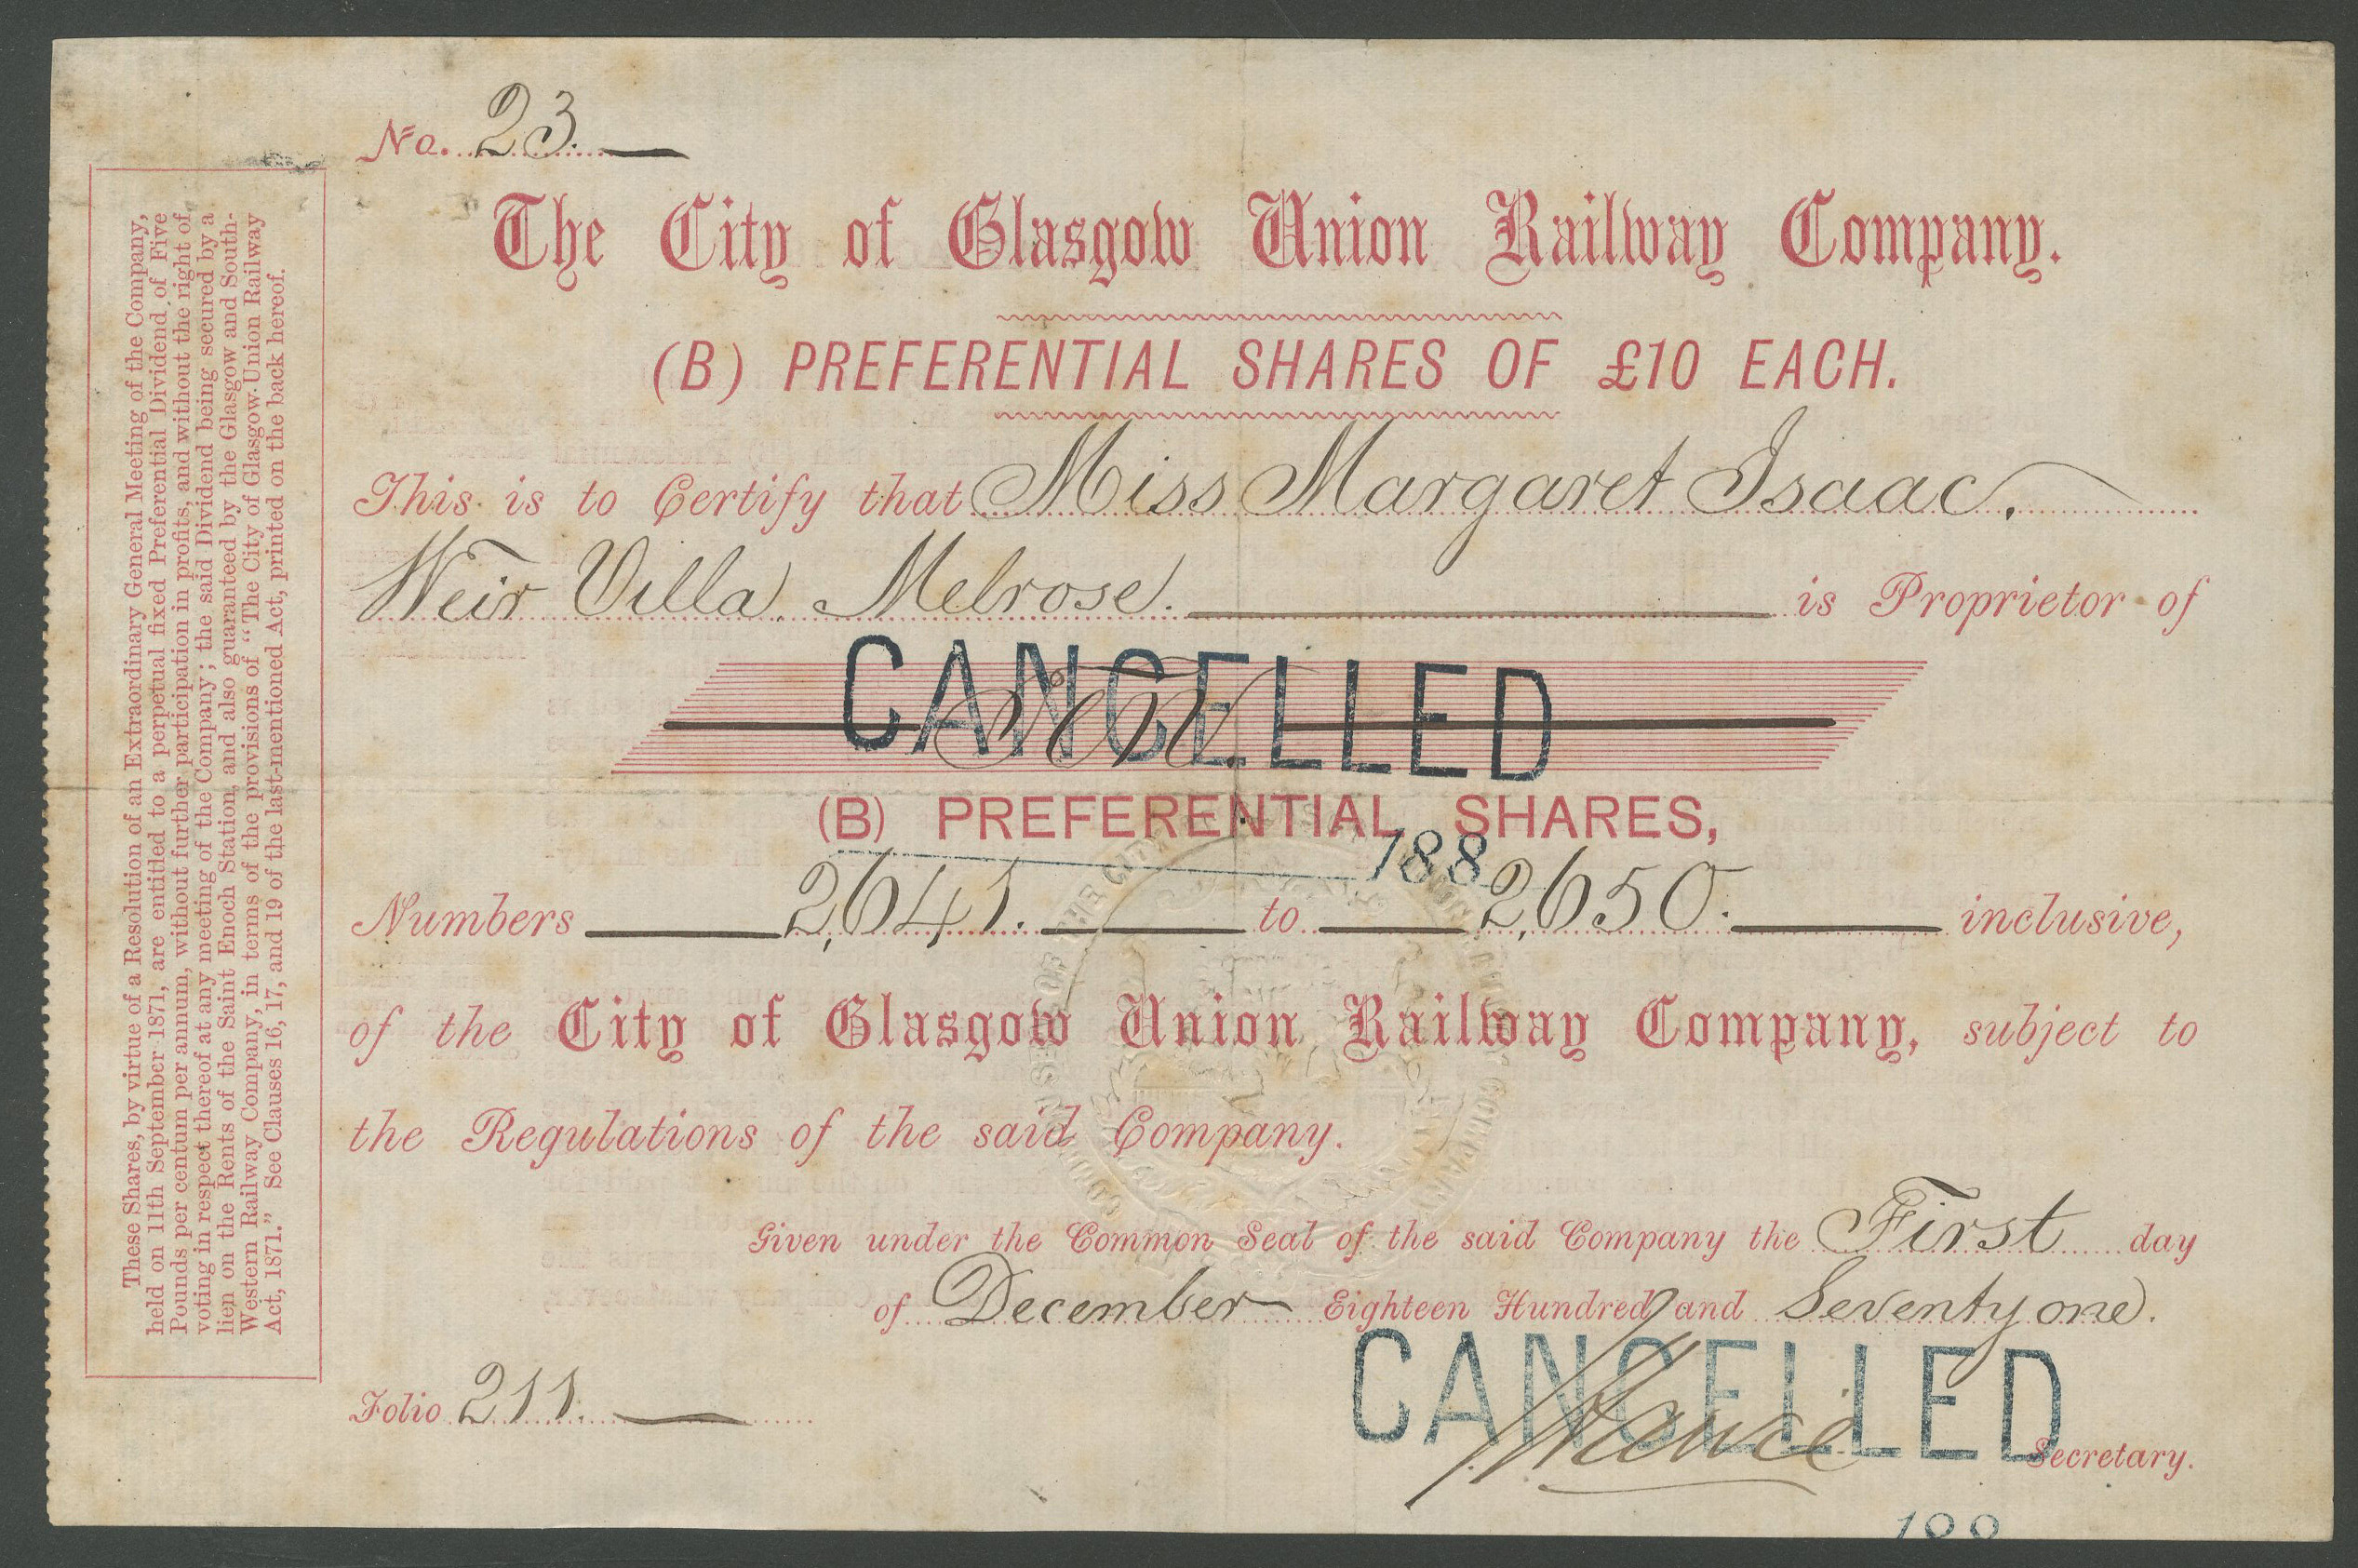 No. 23.
The City of Glasgow Union Railway Company.
(B) PREFERENTIAL SHARES OF £10 EACH.
This is to Certify that Miss Margaret Isaac,
Weir Villa, Melrose. is Proprietor of
Ten
CANCELLED
(B) PREFERENTIAL SHARES,
188
Numbers 2,641. to 2,650. inclusive,
of the City of Glasgow Union Railway Company, subject to
the Regulations of the said Company.
Given under the Common Seal of the said Company the First day
of December Eighteen Hundred and Seventy one.
CANCELLED
Folio 211.
Secretary.
188
These Shares, by virtue of a Resolution of an Extraordinary General Meeting of the Company,
held on 11th September 1871, are entitled to a perpetual fixed Preferential Dividend of Five
Pounds per centum per annum, without further participation in profits, and without the right of
voting in respect thereof at any meeting of the Company; the said Dividend being secured by a
lien on the Rents of the Saint Enoch Station, and also guaranteed by the Glasgow and South-
Western Railway Company, in terms of the provisions of "The City of Glasgow Union Railway
Act, 1871." See Clauses 16, 17, and 19 of the last-mentioned Act, printed on the back hereof.